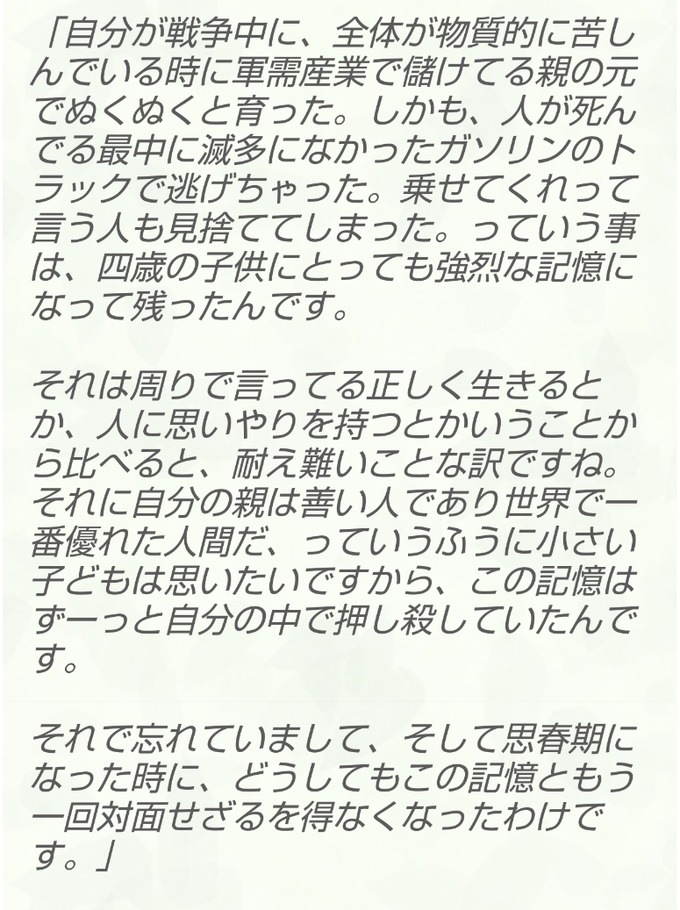 「自分が戦争中に、全体が物質的に苦し
んでいる時に軍需産業で儲けてる親の元
でぬくぬくと育った。しかも、人が死ん
でる最中に滅多になかったガソリンのト
ラックで逃げちゃった。乗せてくれって
言う人も見捨ててしまった。っていう事
は、四歳の子供にとっても強烈な記憶に
なって残ったんです。
それは周りで言ってる正しく生きると
か、人に思いやりを持つとかいうことか
ら比べると、耐え難いことな訳ですね。
それに自分の親は善い人であり世界で一
番優れた人間だ、っていうふうに小さい
子どもは思いたいですから、この記憶は
ずーっと自分の中で押し殺していたんで
す。
それで忘れていまして、そして思春期に
なった時に、どうしてもこの記憶ともう
一回対面せざるを得なくなったわけで
す。」